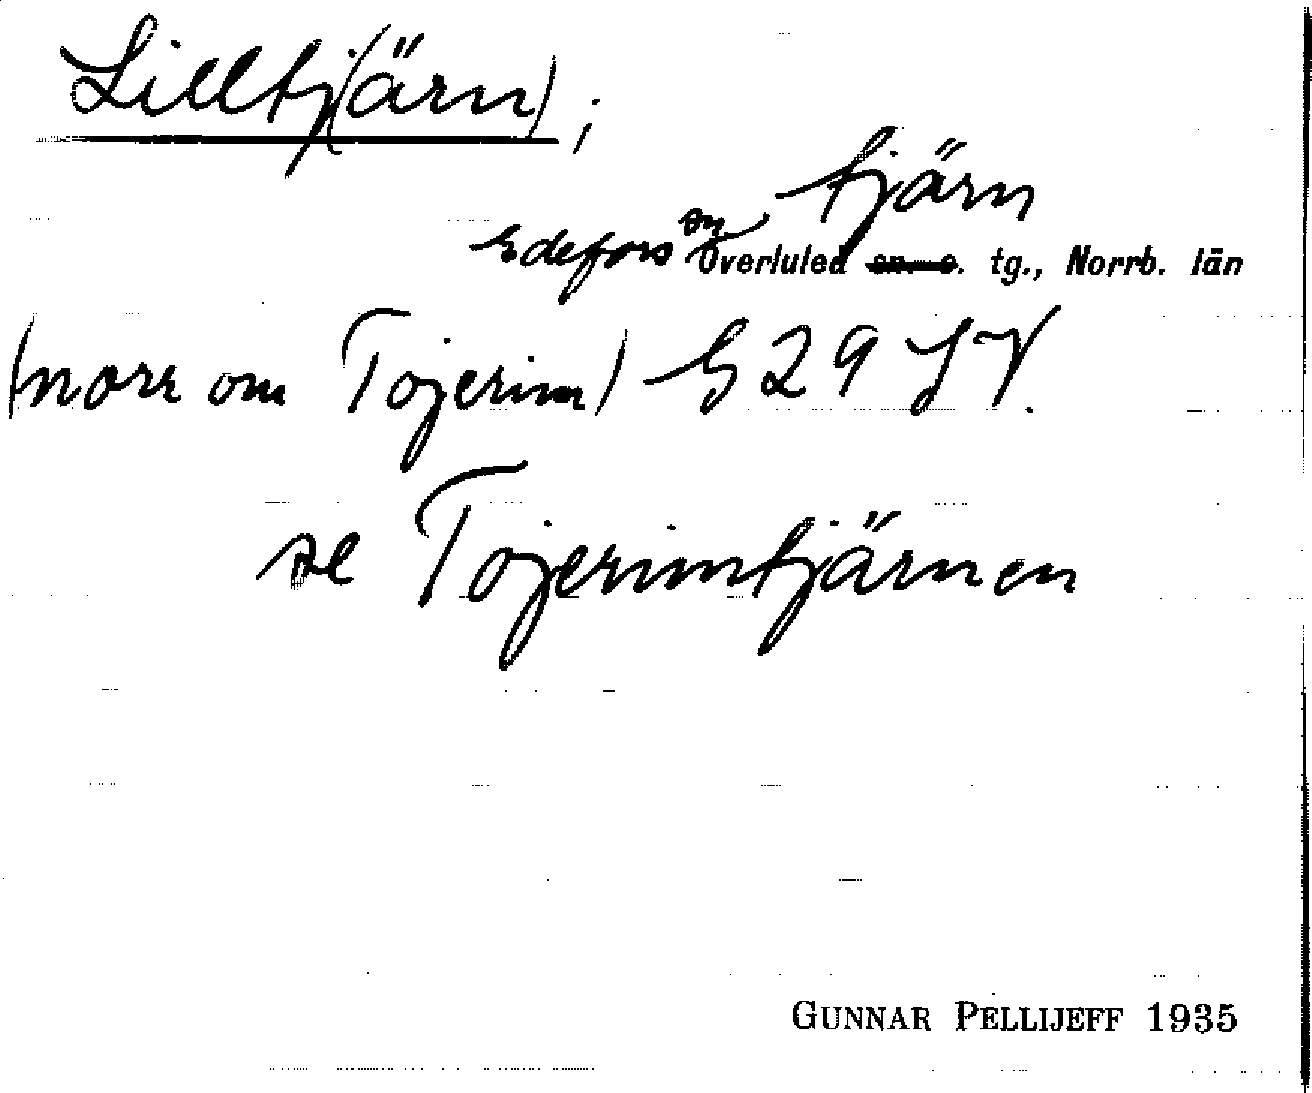 Lilltj(ärn);
tjärn
Edefors sn, Överluleå sn o. tg., Norrb. län
(norr om Tojerim) G 29 SV.
se Tojerimtjärnen
GUNNAR PELLIJEFF 1935